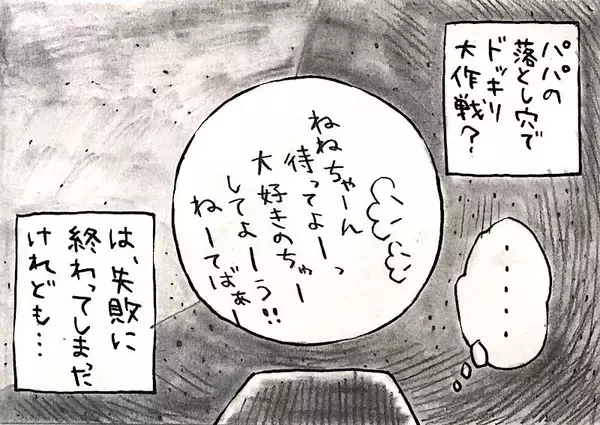 パパの
落とし穴で
ドッキリ
大作戦?
ねねちゃーん
待ってよーっ
大好きのちゃー
してよーう!!
ねーてばぁー
・・・・・・
は、失敗に
終わってしまった
けれども…